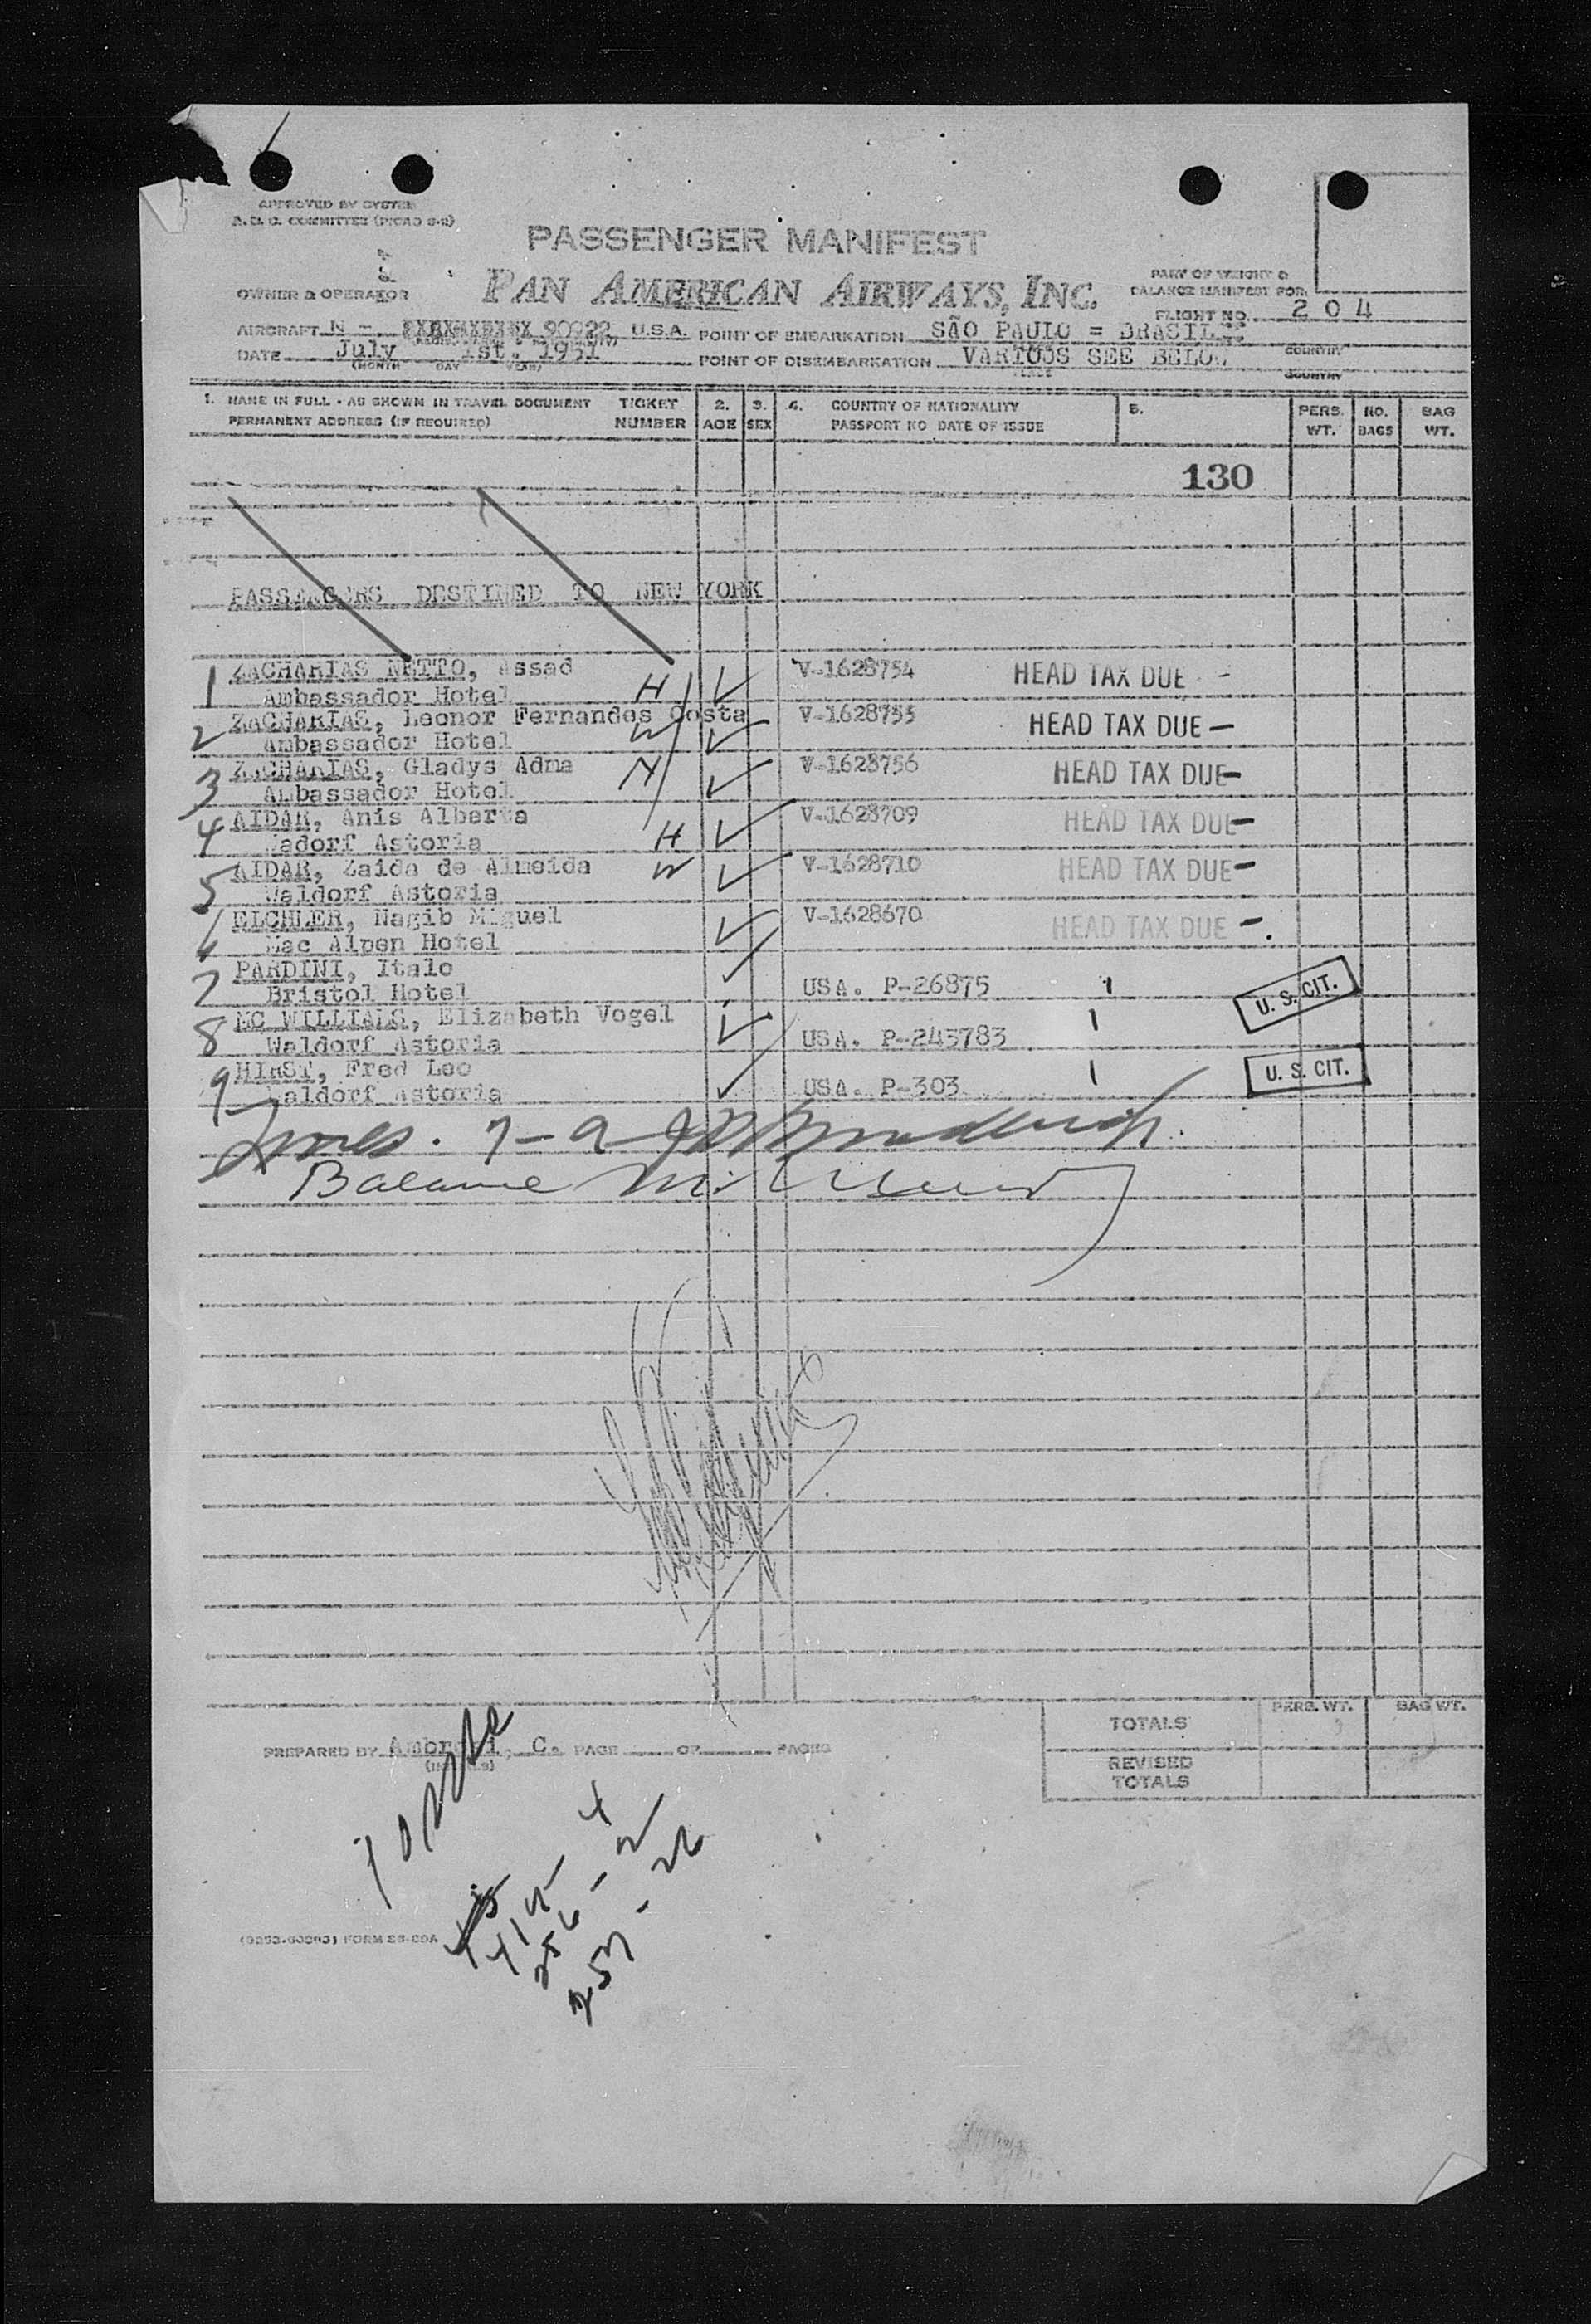 APPROVED BY SYSTEM
A.D.C. COMMITTEE (PICAO S-2)
PASSENGER MANIFEST
OWNER & OPERATOR PAN AMERICAN AIRWAYS, INC.
PART OF WEIGHT &
BALANCE MANIFEST FOR
FLIGHT NO. 204
AIRCRAFT N - 90922 U.S.A. POINT OF EMBARKATION SÃO PAULO = BRASIL
COUNTRY
DATE July 1st. 1951 POINT OF DISEMBARKATION VARIOUS SEE BELOW
(MONTH DAY YEAR) COUNTRY
1. NAME IN FULL - AS SHOWN IN TRAVEL DOCUMENT TICKET 2. 3. 4. COUNTRY OF NATIONALITY 5. PERS. NO. BAG
PERMANENT ADDRESS (IF REQUIRED) NUMBER AGE SEX PASSPORT NO DATE OF ISSUE WT. BAGS WT.
130
PASSENGERS DESTINED TO NEW YORK
1 ZACHARIAS NETTO, Assad V-1628754 HEAD TAX DUE -
Ambassador Hotel H
2 ZACHARIAS, Leonor Fernandes Costa V-1628755 HEAD TAX DUE -
Ambassador Hotel W
3 ZACHARIAS, Gladys Adma V-1628756 HEAD TAX DUE -
Ambassador Hotel
4 AIDAR, Anis Alberta V-1628709 HEAD TAX DUE -
Wadorf Astoria H
5 AIDAR, Zaida de Almeida W V-1628710 HEAD TAX DUE -
Waldorf Astoria
6 EICHLER, Nagib Miguel V-1628670 HEAD TAX DUE -
Mac Alpen Hotel
7 PARDINI, Italo
Bristol Hotel USA. P-26875 1 U. S. CIT.
8 MC WILLIAMS, Elizabeth Vogel
Waldorf Astoria USA. P-245783 1
9 HIRST, Fred Leo
Waldorf Astoria USA. P-303 1 U. S. CIT.
7-9
Balance
TOTALS PERS. WT. BAG WT.
PREPARED BY C. PAGE OF PAGES
REVISED
TOTALS
FORM